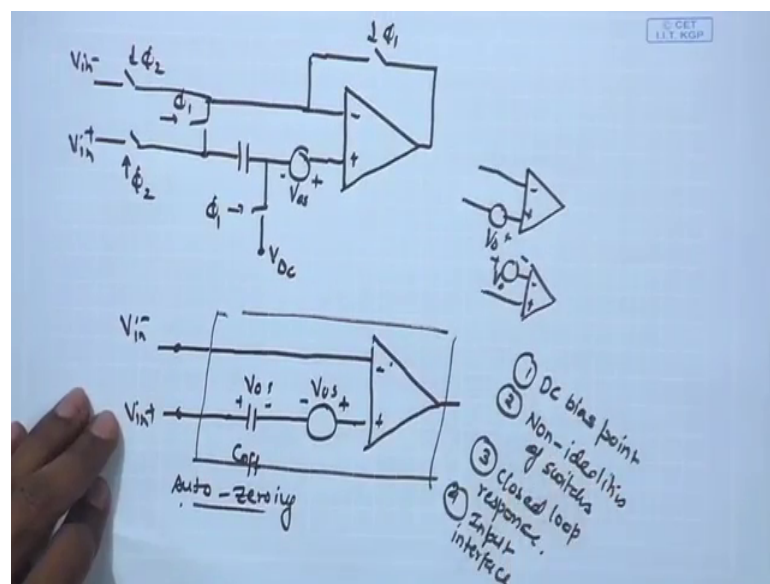 © CET
I.I.T. KGP
↓ϕ₁
Vin⁻
↓ϕ₂
ϕ₁
→
Vin⁺
↑ϕ₂
-
+
- +
Vos
ϕ₁ →
VDC
-
+
+
-
+
Vin⁻
Vin+
+ Vos -
- Vos +
-
+
Coff
Auto-zeroing
① DC bias point
② Non-idealitis
of switchs
③ Closed loop
response.
④ Input
interface